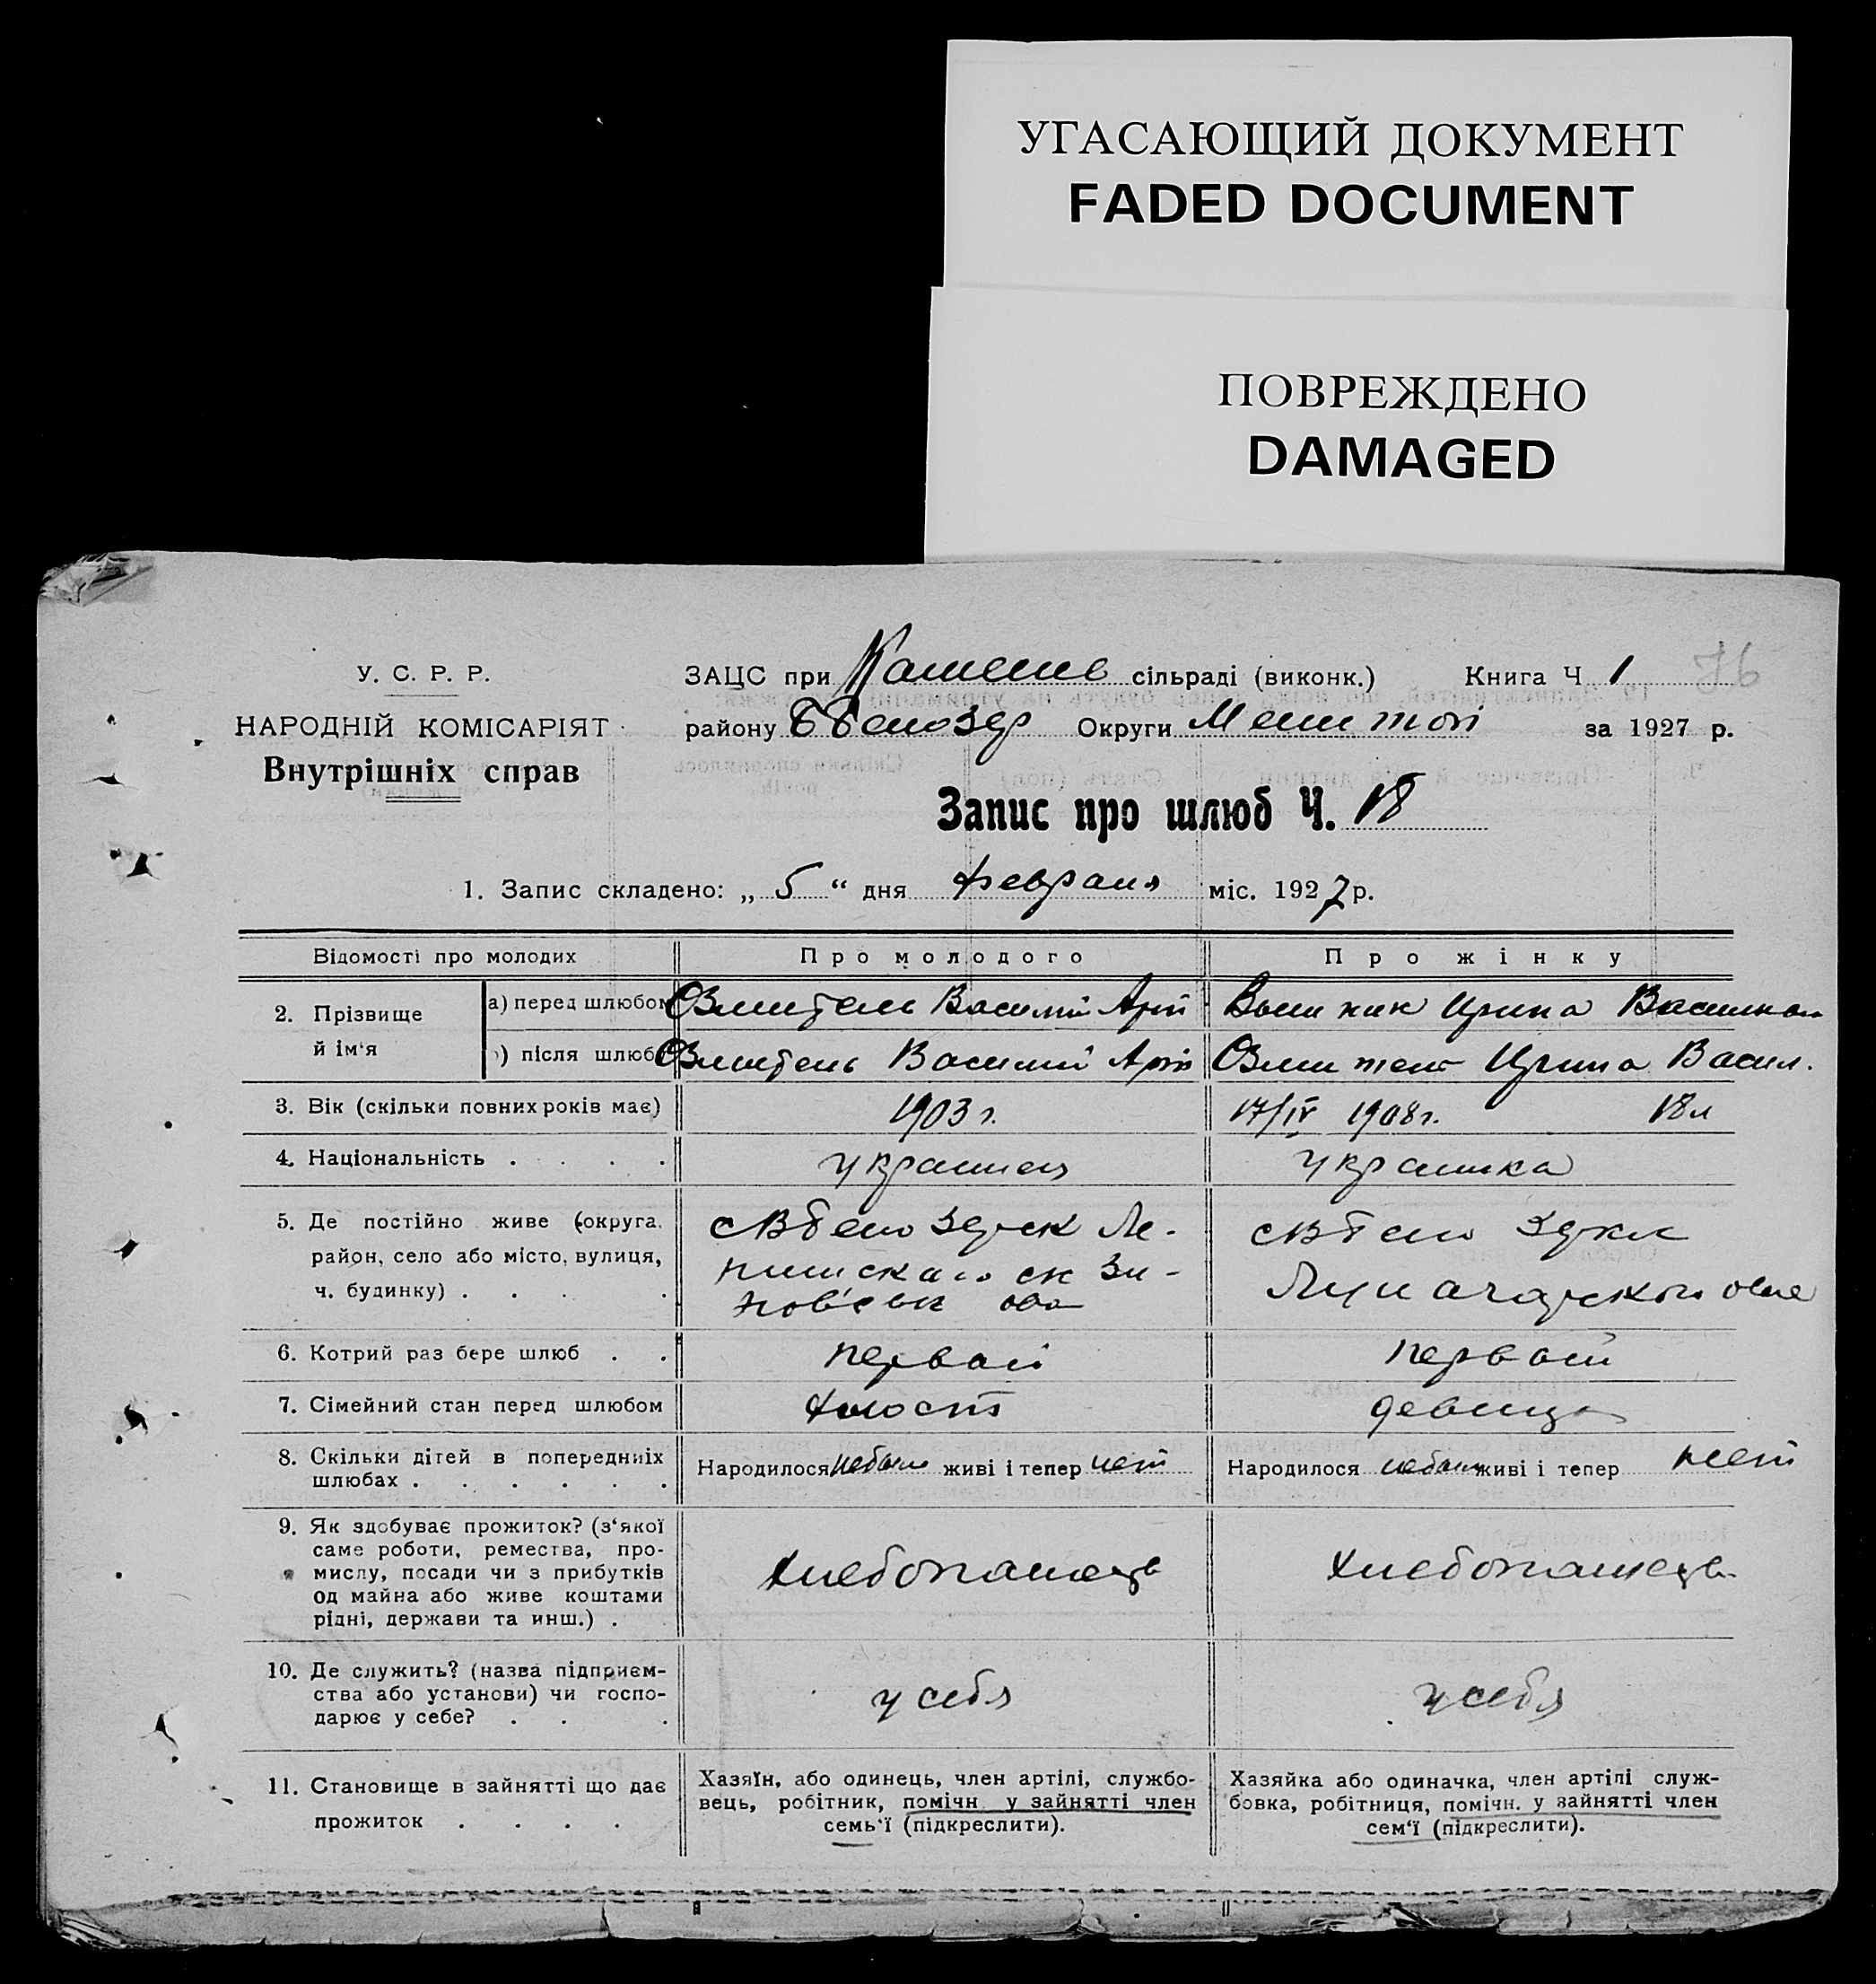 УГАСАЮЩИЙ ДОКУМЕНТ
FADED DOCUMENT
ПОВРЕЖДЕНО
DAMAGED
У. С. Р. Р.
НАРОДНІЙ КОМІСАРІЯТ
Внутрішніх справ
ЗАЦС при сільраді (виконк.) Книга Ч 1 76
району Округи за 1927 р.
Запис про шлюб Ч. 18
1. Запис складено: „ 5 “ дня февраля міс. 1927 р.
Відомості про молодих Про молодого Про жінку
2. Прізвище й ім‘я
а) перед шлюбом Василий Ирина
) після шлюб Василий Ирина Васил.
3. Вік (скільки повних років має) 1903 г. 17/IV 1908 г. 18 л
4. Національність . . . . украинец украинка
5. Де постійно живе (округа,
район, село або місто, вулиця,
ч. будинку) . . . .
6. Котрий раз бере шлюб . . первой первой
7. Сімейний стан перед шлюбом холост девица
8. Скільки дітей в попередніх
шлюбах . . . . . . Народилося небыло живі і тепер нет Народилося небыло живі і тепер нет
9. Як здобуває прожиток? (з‘якої
саме роботи, ремества, про-
мислу, посади чи з прибутків
од майна або живе коштами
рідні, держави та инш.) . хлебопашець хлебопашець
10. Де служить? (назва підприєм-
ства або установи) чи госпо-
дарює у себе? . . . у себя у себя
11. Становище в зайнятті що дає
прожиток . . . .
Хазяїн, або одинець, член артілі, службо-
вець, робітник, помічн. у зайнятті член
семь‘ї (підкреслити).
Хазяйка або одиначка, член артілі служ-
бовка, робітниця, помічн. у зайнятті член
сем‘ї (підкреслити).